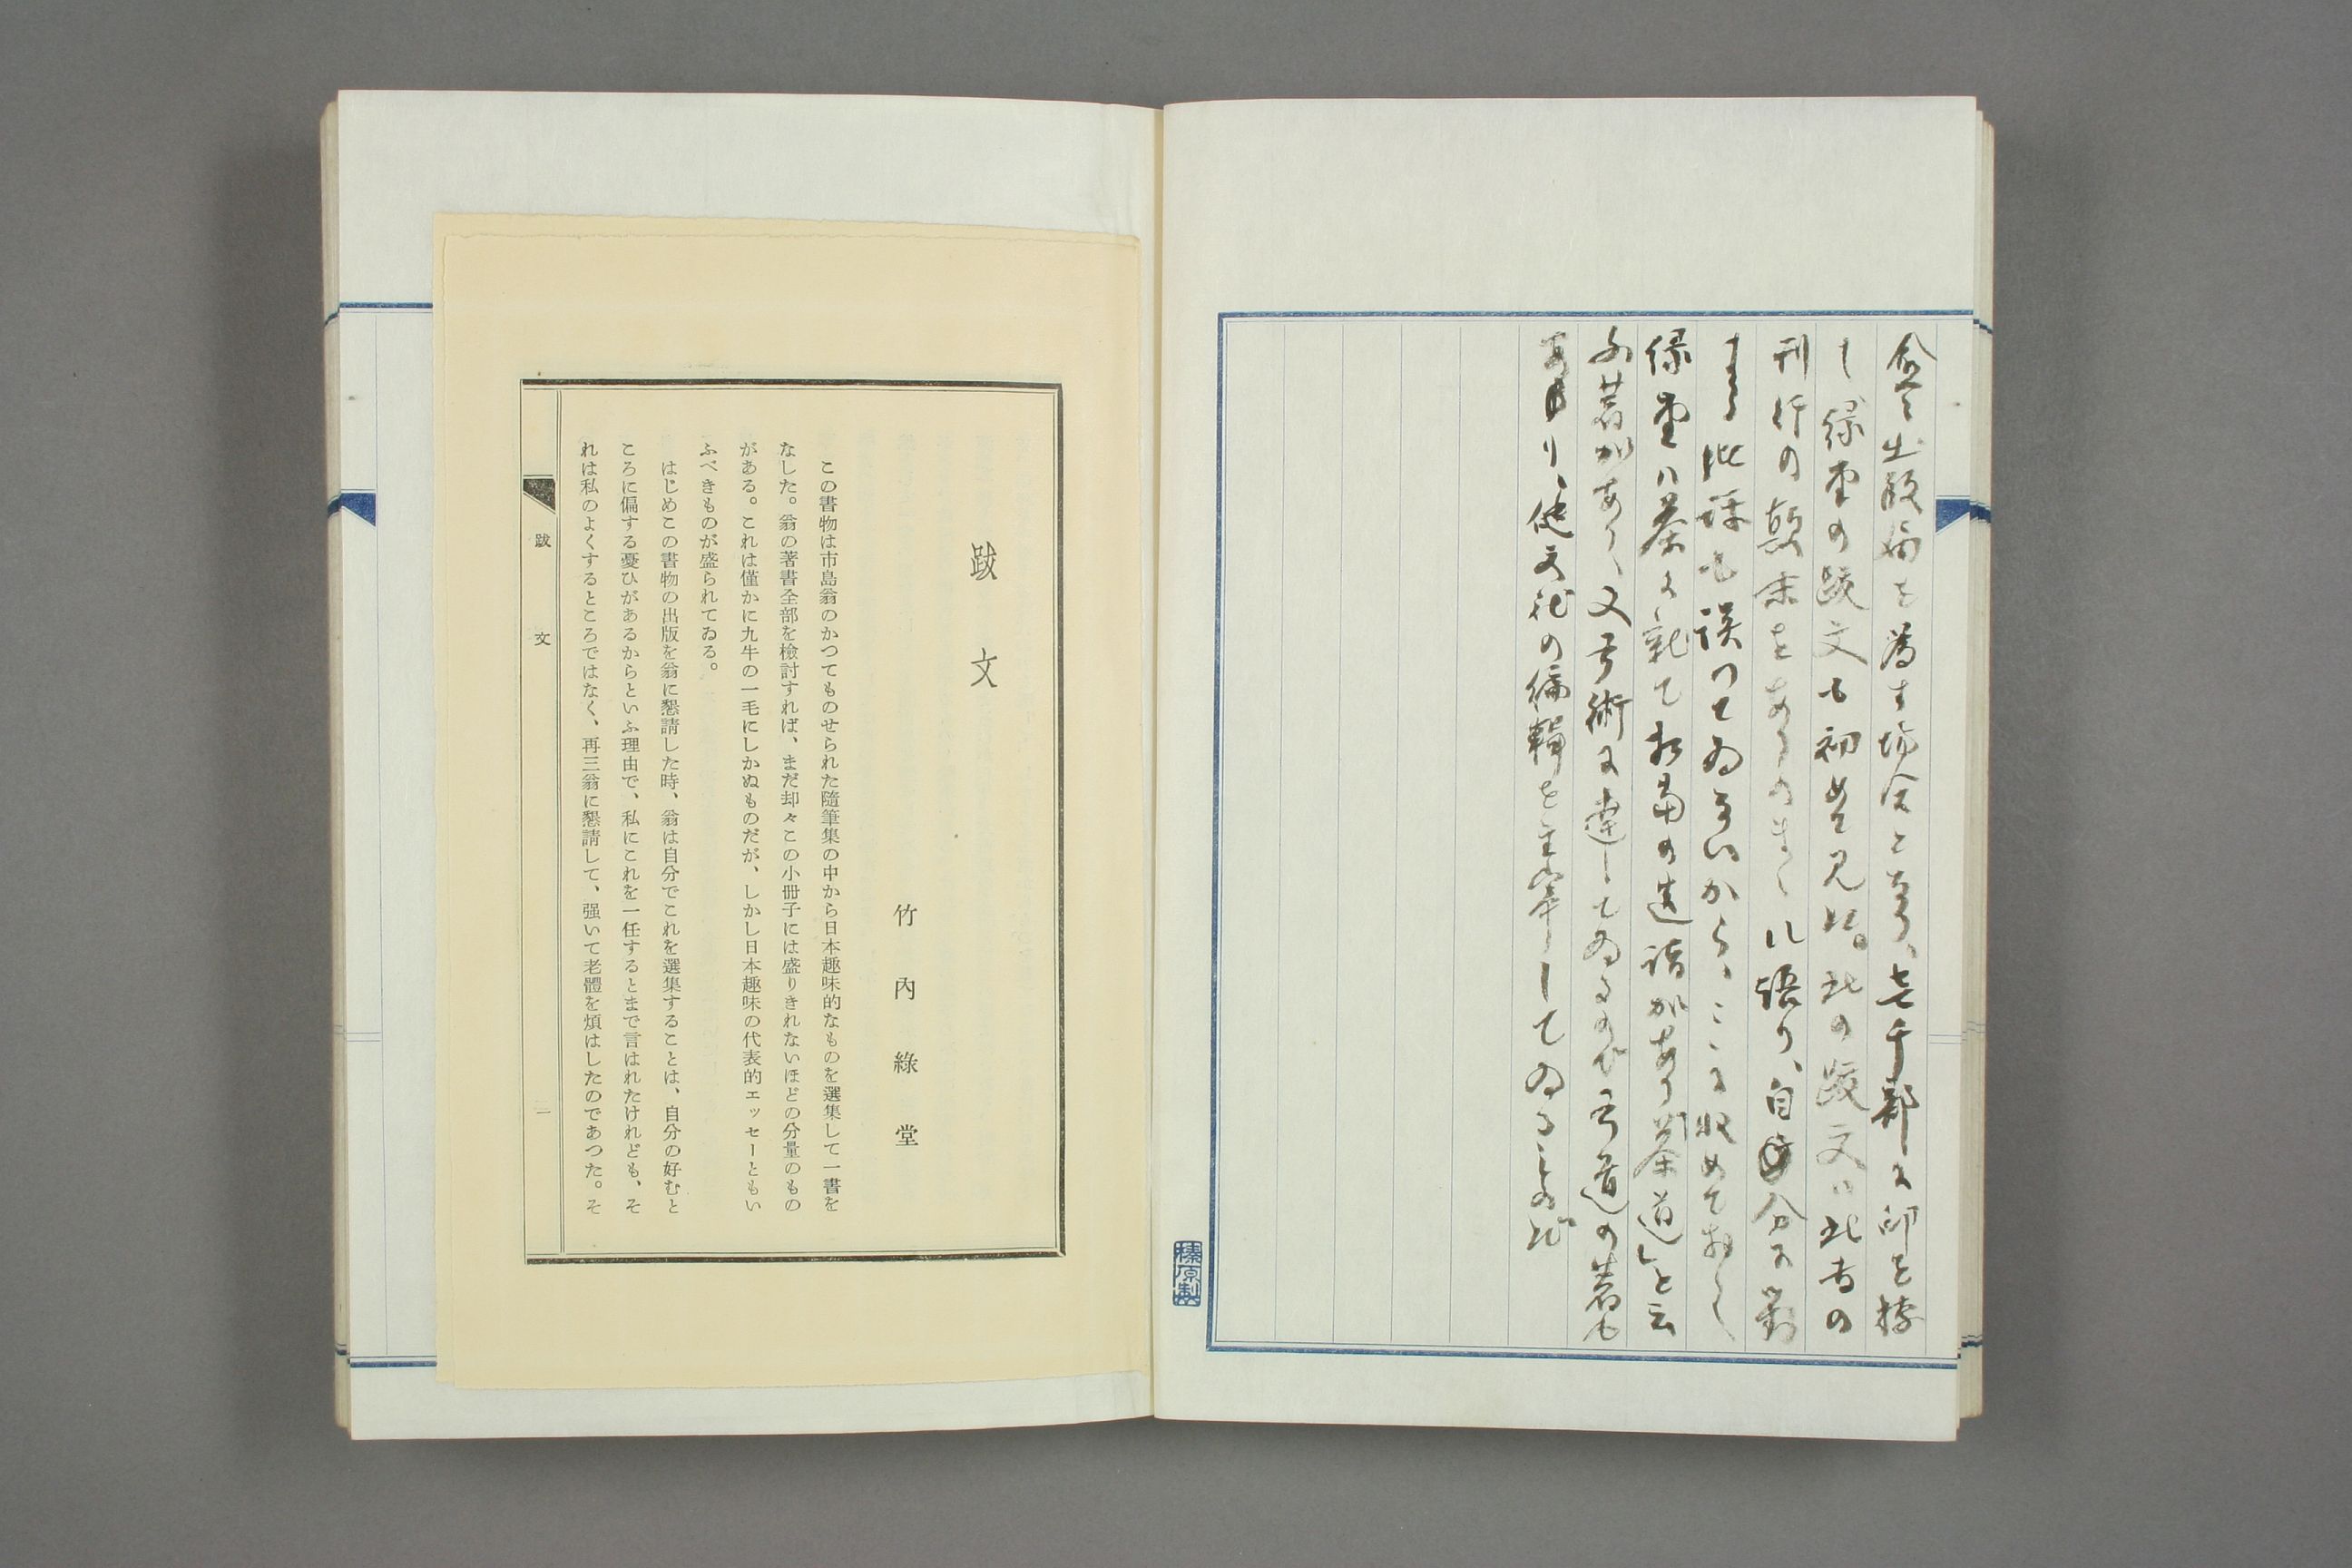 愈々出版届を為す場合となり、壱千部に印を捺
し緑堂の跋文も初めて見た。此の跋文は此書の
刊行の顛末をありのまゝに語り、自分に対
する批評も誤つてゐないから、こゝに収めておく
緑堂は茶に就て相当の造詣があり「茶道」と云
ふ著があり、又弓術に達してゐるので弓道の著も
あり、他文社の編輯を主宰してゐる
榛原製
跋文
竹內綠堂
この書物は市島翁のかつてものせられた隨筆集の中から日本趣味的なものを選集して一書を
なした。翁の著書全部を檢討すれば、まだ却々この小冊子には盛りきれないほどの分量のもの
がある。これは僅かに九牛の一毛にしかぬものだが、しかし日本趣味の代表的エッセーともい
ふべきものが盛られてゐる。
はじめこの書物の出版を翁に懇請した時、翁は自分でこれを選集することは、自分の好むと
ころに偏する憂ひがあるからといふ理由で、私にこれを一任するとまで言はれたけれども、そ
れは私のよくするところではなく、再三翁に懇請して、强いて老體を煩はしたのであつた。そ
跋文
一